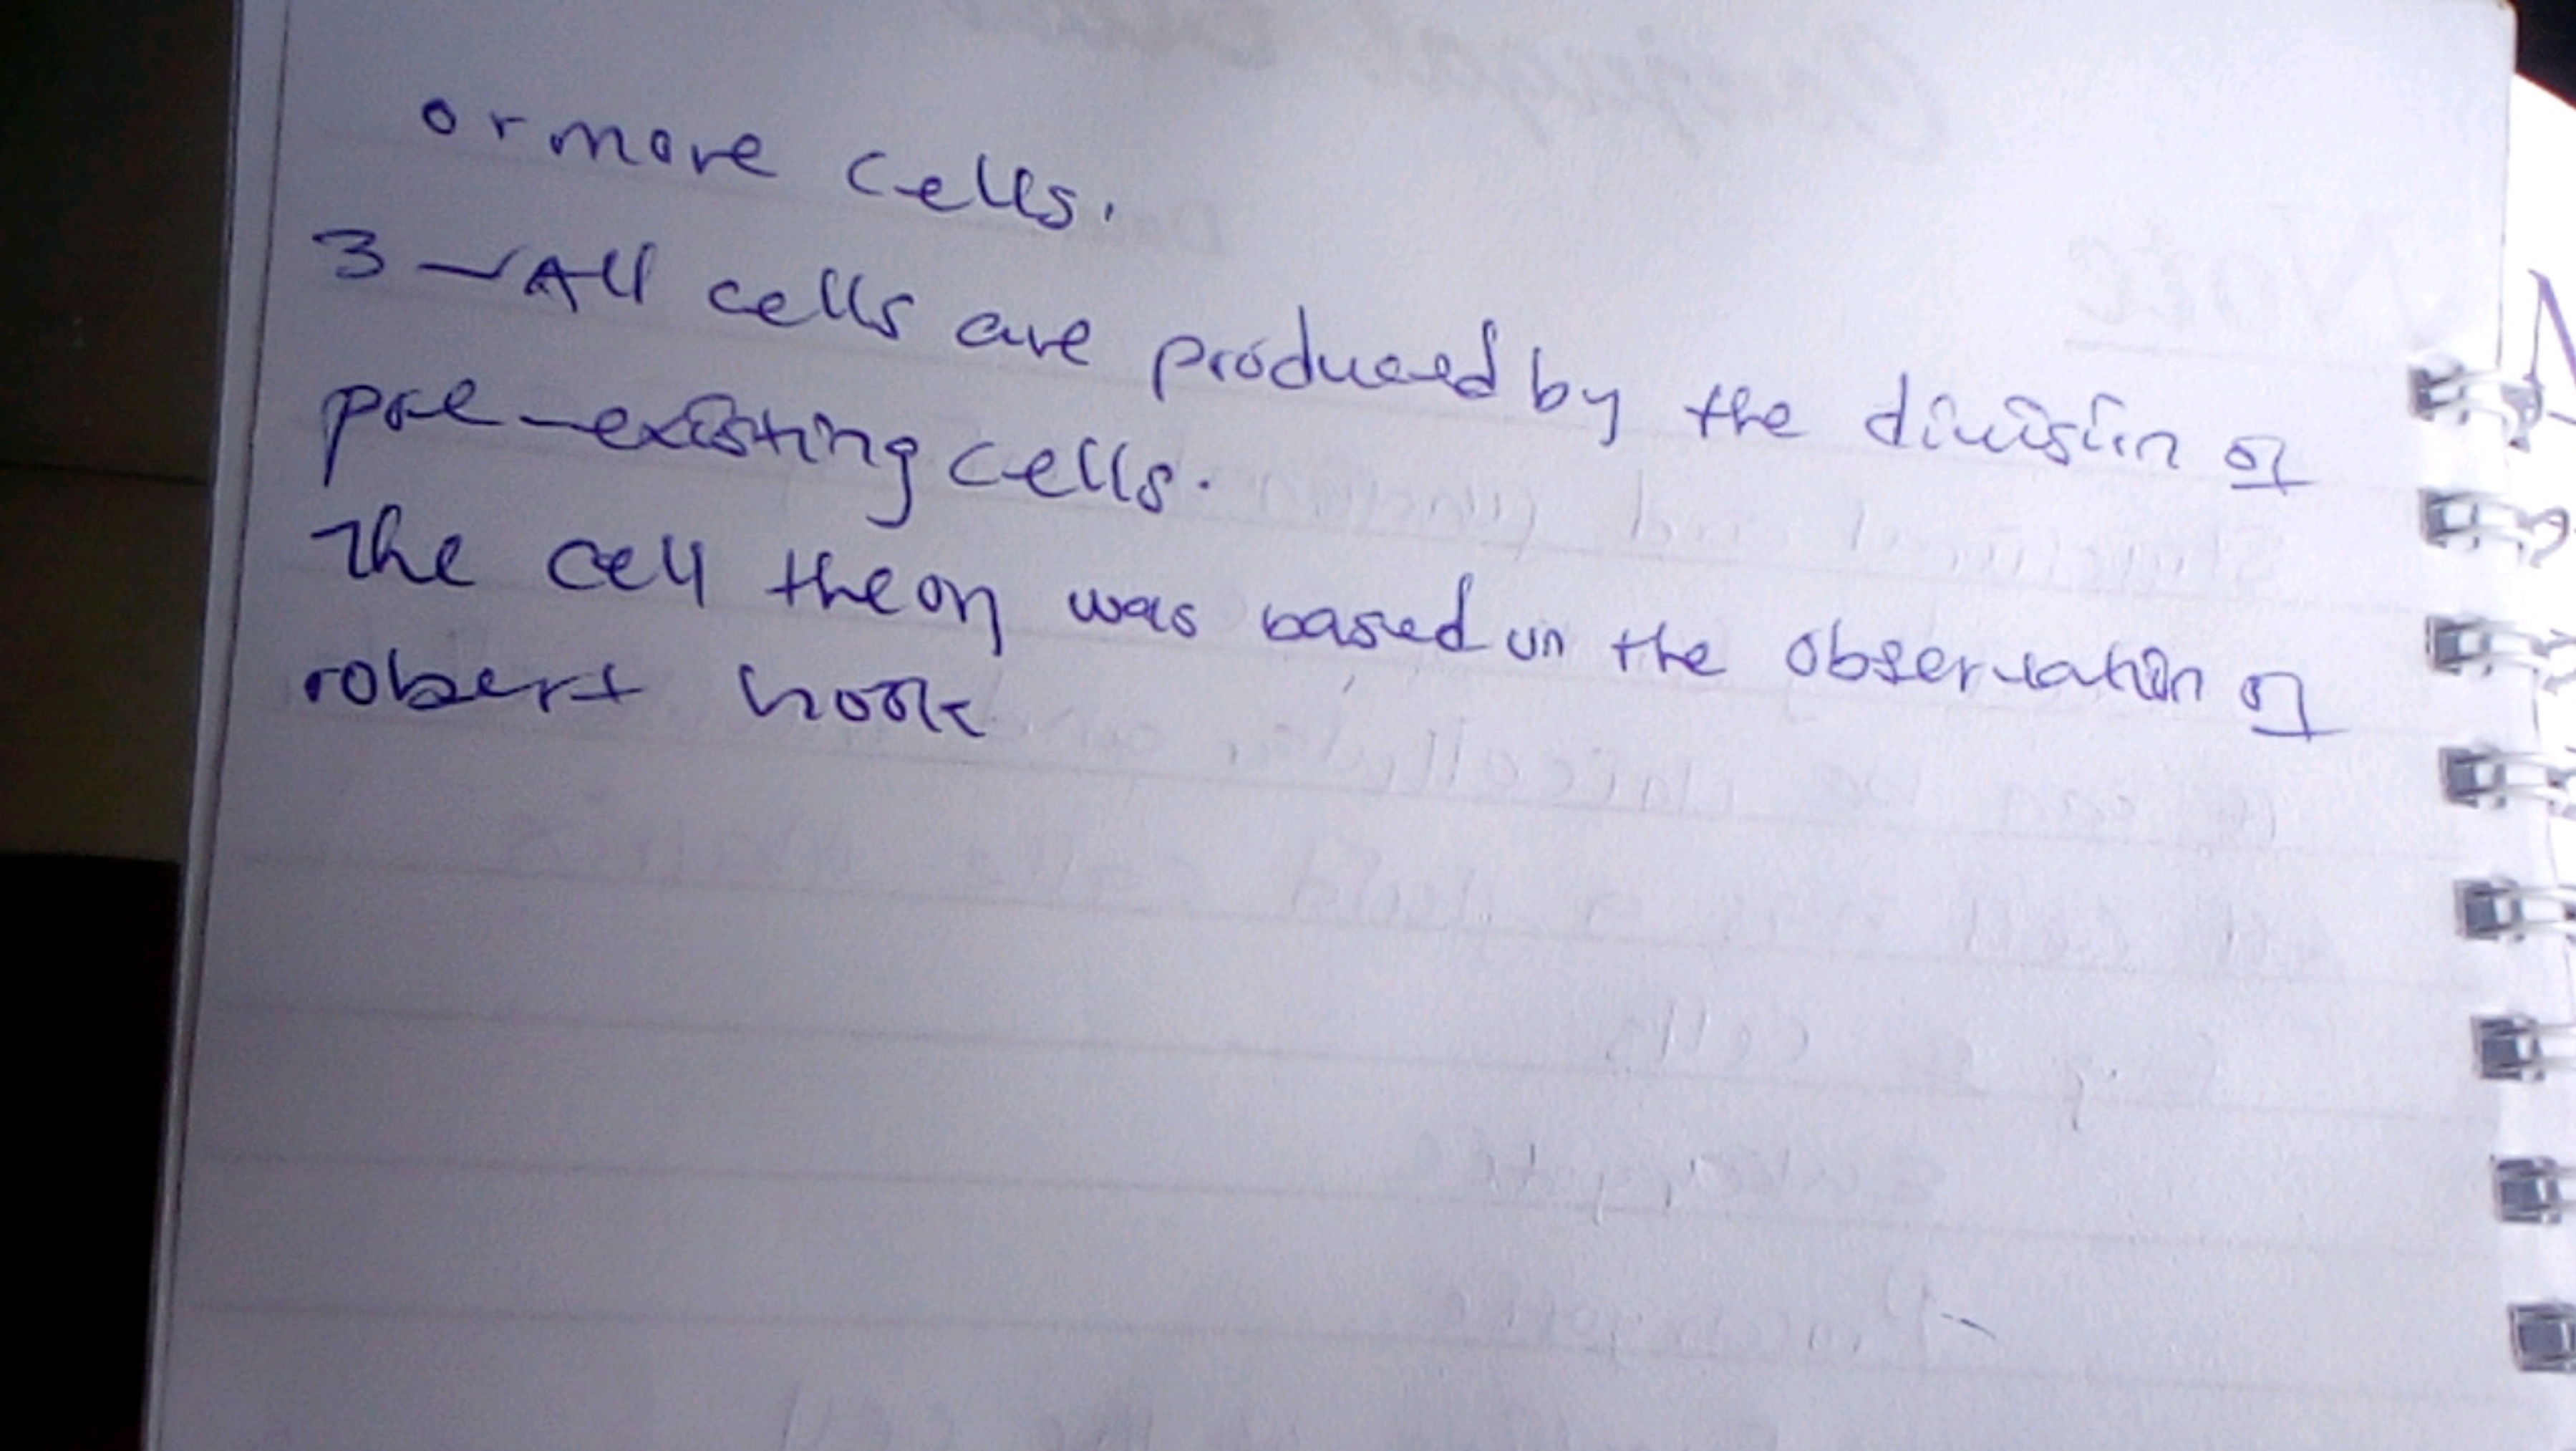 or more cells.
3 - All cells are produced by the division of
pre-existing cells.
The cell theory was based on the observation of
robert hook